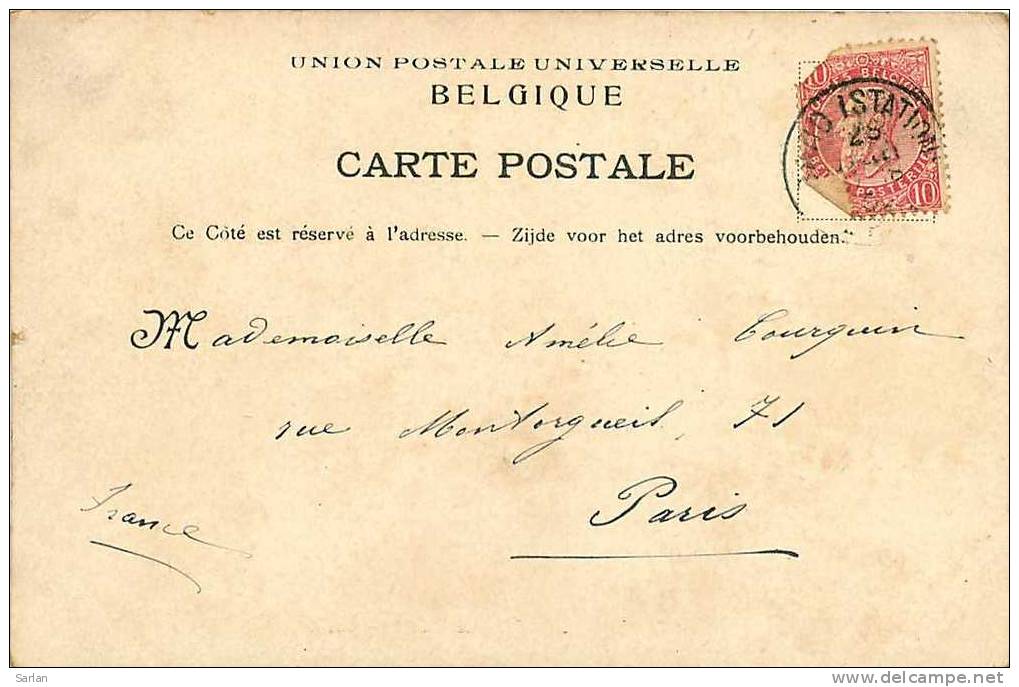 UNION POSTALE UNIVERSELLE
BELGIQUE
CARTE POSTALE
Ce Côté est réservé à l'adresse. — Zijde voor het adres voorbehouden.
10
10
(STATION)
Mademoiselle Amélie Courguin
rue Montorgueil, 71
Paris
France
Sarlan
www.delcampe.net